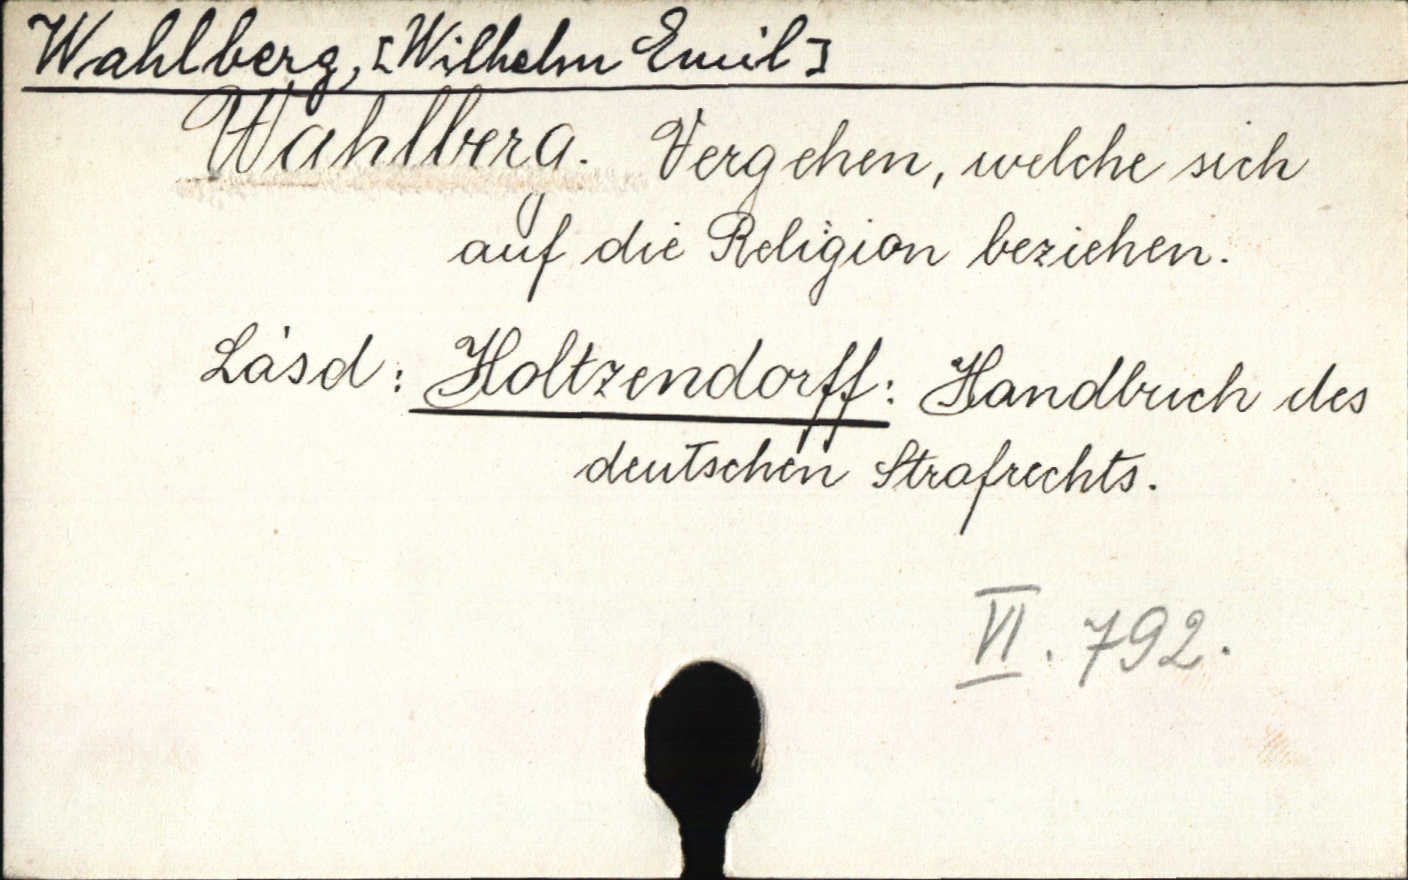 Wahlberg, [Wilhelm Emil]
Wahlberg. Vergehen, welche sich
auf die Religion beziehen.
Lásd: Holtzendorff: Handbuch des
deutschen Strafrechts.
VI. 792.